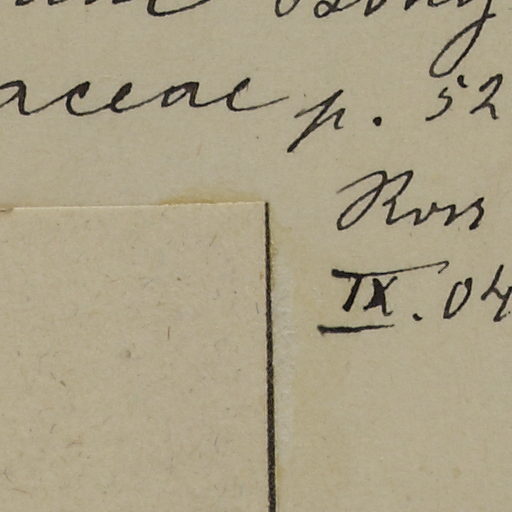 aceae p. 52
Ross
IX. 04